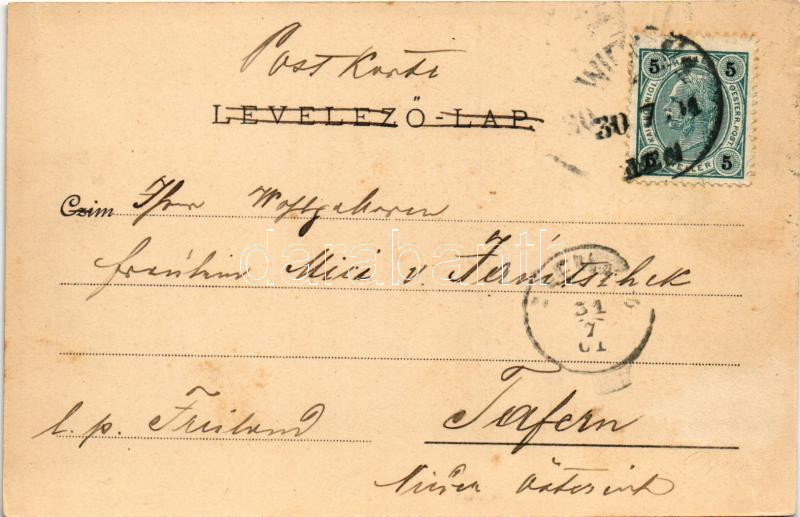 Post Karte
LEVELEZŐ-LAP
5 5
KAISERL. KÖNIGL. OESTERR. POST.
HELLER 5
WIEN
30
01
Czim Ihrer Wohlgeboren
Fräulein Mici v.
darabanth
31
7
01
l. p. Freiland
Tafern
Nieder Österreich